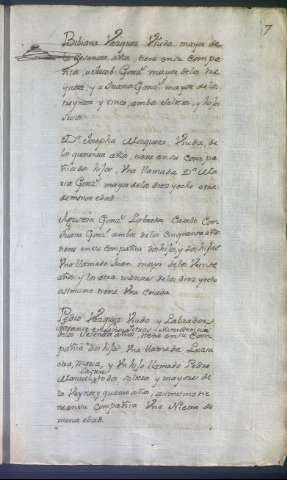 7
Bibiana Vazquez Viuda, mayor de
los sesenta años, tiene en su compa
ñia, a Jacob Gonz.z mayor de los tre
ynta, y a Juana Gonz.z mayor de los
treynta y cinco, ambos solteros, y hijos
suios.
D.a Josepha Marquez, Viuda, de
los quarenta años, tiene en su com
pañia dos hijos, Vna llamada D.a Ma
ria Gonz.z mayor de los diez y ocho otro
de menor edad.
Agustin Gonz.z Labrador Casado con
Juana Gonz.z ambos de los cinquenta años
tiene en su compañia dos hijos, y dos hijas
Vno llamado Juan mayor de los Veinte
años, y los otros menores de los diez y ocho
asimismo tiene Vna Criada.
Pedro Vazquez Viudo y Labrador,
los sesenta años, tiene en su com
pañia dos hijas, Vna llamada Luisa
otra, Maria, y Vn hijo llamado Pedro
Manuel, todos solteros y mayores de
los Veynte y quatro años, asimismo tie
ne en su compañia Vna Nieta de
menor edad.